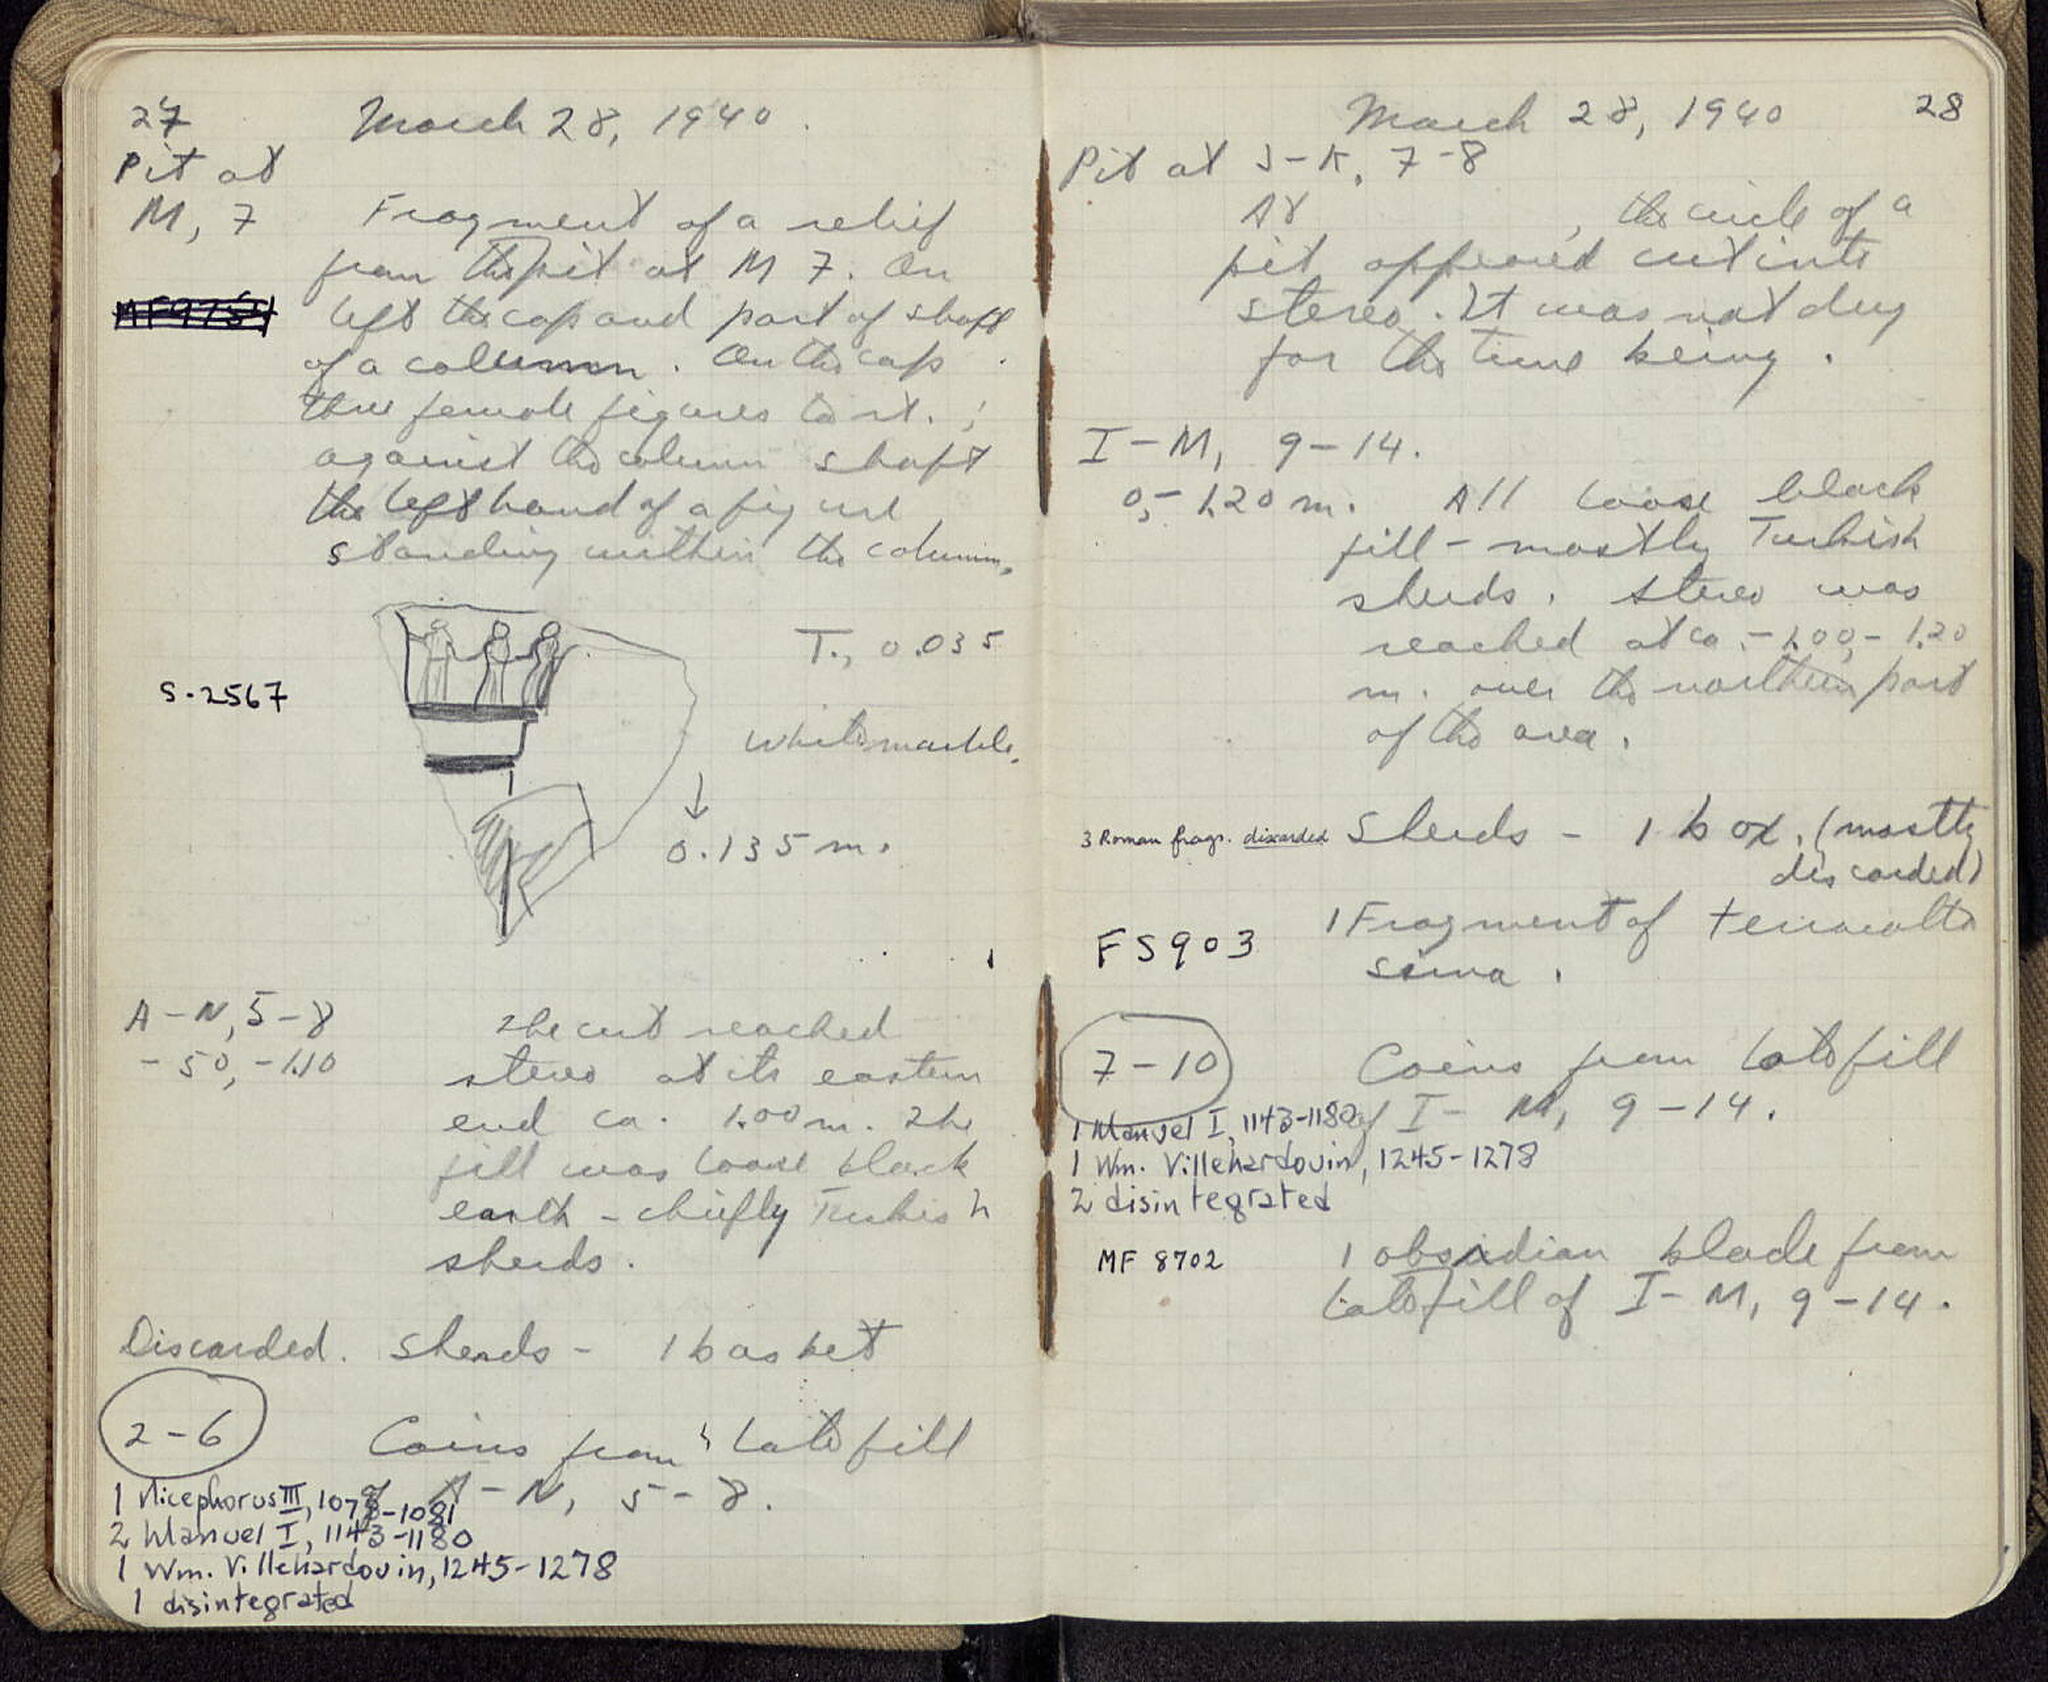 27
March 28, 1940.
Pit at
M, 7
Fragment of a relief
from the pit at M 7. On
left the cap and part of shaft
of a column. On the cap
three female figures to rt.;
against the column shaft
the left hand of a figure
standing within the column.
T., 0.035
S-2567
White marble.
0.135 m.
A-N, 5-8
-50, -1.10
The cut reached
stereo at its eastern
end ca. 1.00 m. The
fill was loose black
earth - chiefly Turkish
sherds.
Discarded. Sherds - 1 basket
2-6
Coins from late fill
of A-N, 5-8.
1 Nicephorus III, 1078-1081
2 Manuel I, 1143-1180
1 Wm. Villehardouin, 1245-1278
1 disintegrated
March 28, 1940
28
Pit at J-K, 7-8
At , the circle of a
pit appeared cut into
stereo. It was not dug
for the time being.
I-M, 9-14.
0,-1.20 m. All loose black
fill - mostly Turkish
sherds. Stereo was
reached at ca. -1.00,-1.20
m. over the northern part
of the area.
3 Roman frags. discarded Sherds - 1 box. (mostly
discarded)
FS 903
1 Fragment of terracotta
sima.
7-10
Coins from late fill
of I-M, 9-14.
1 Manuel I, 1143-1180
1 Wm. Villehardouin, 1245-1278
2 disintegrated
MF 8702
1 obsidian blade from
late fill of I-M, 9-14.